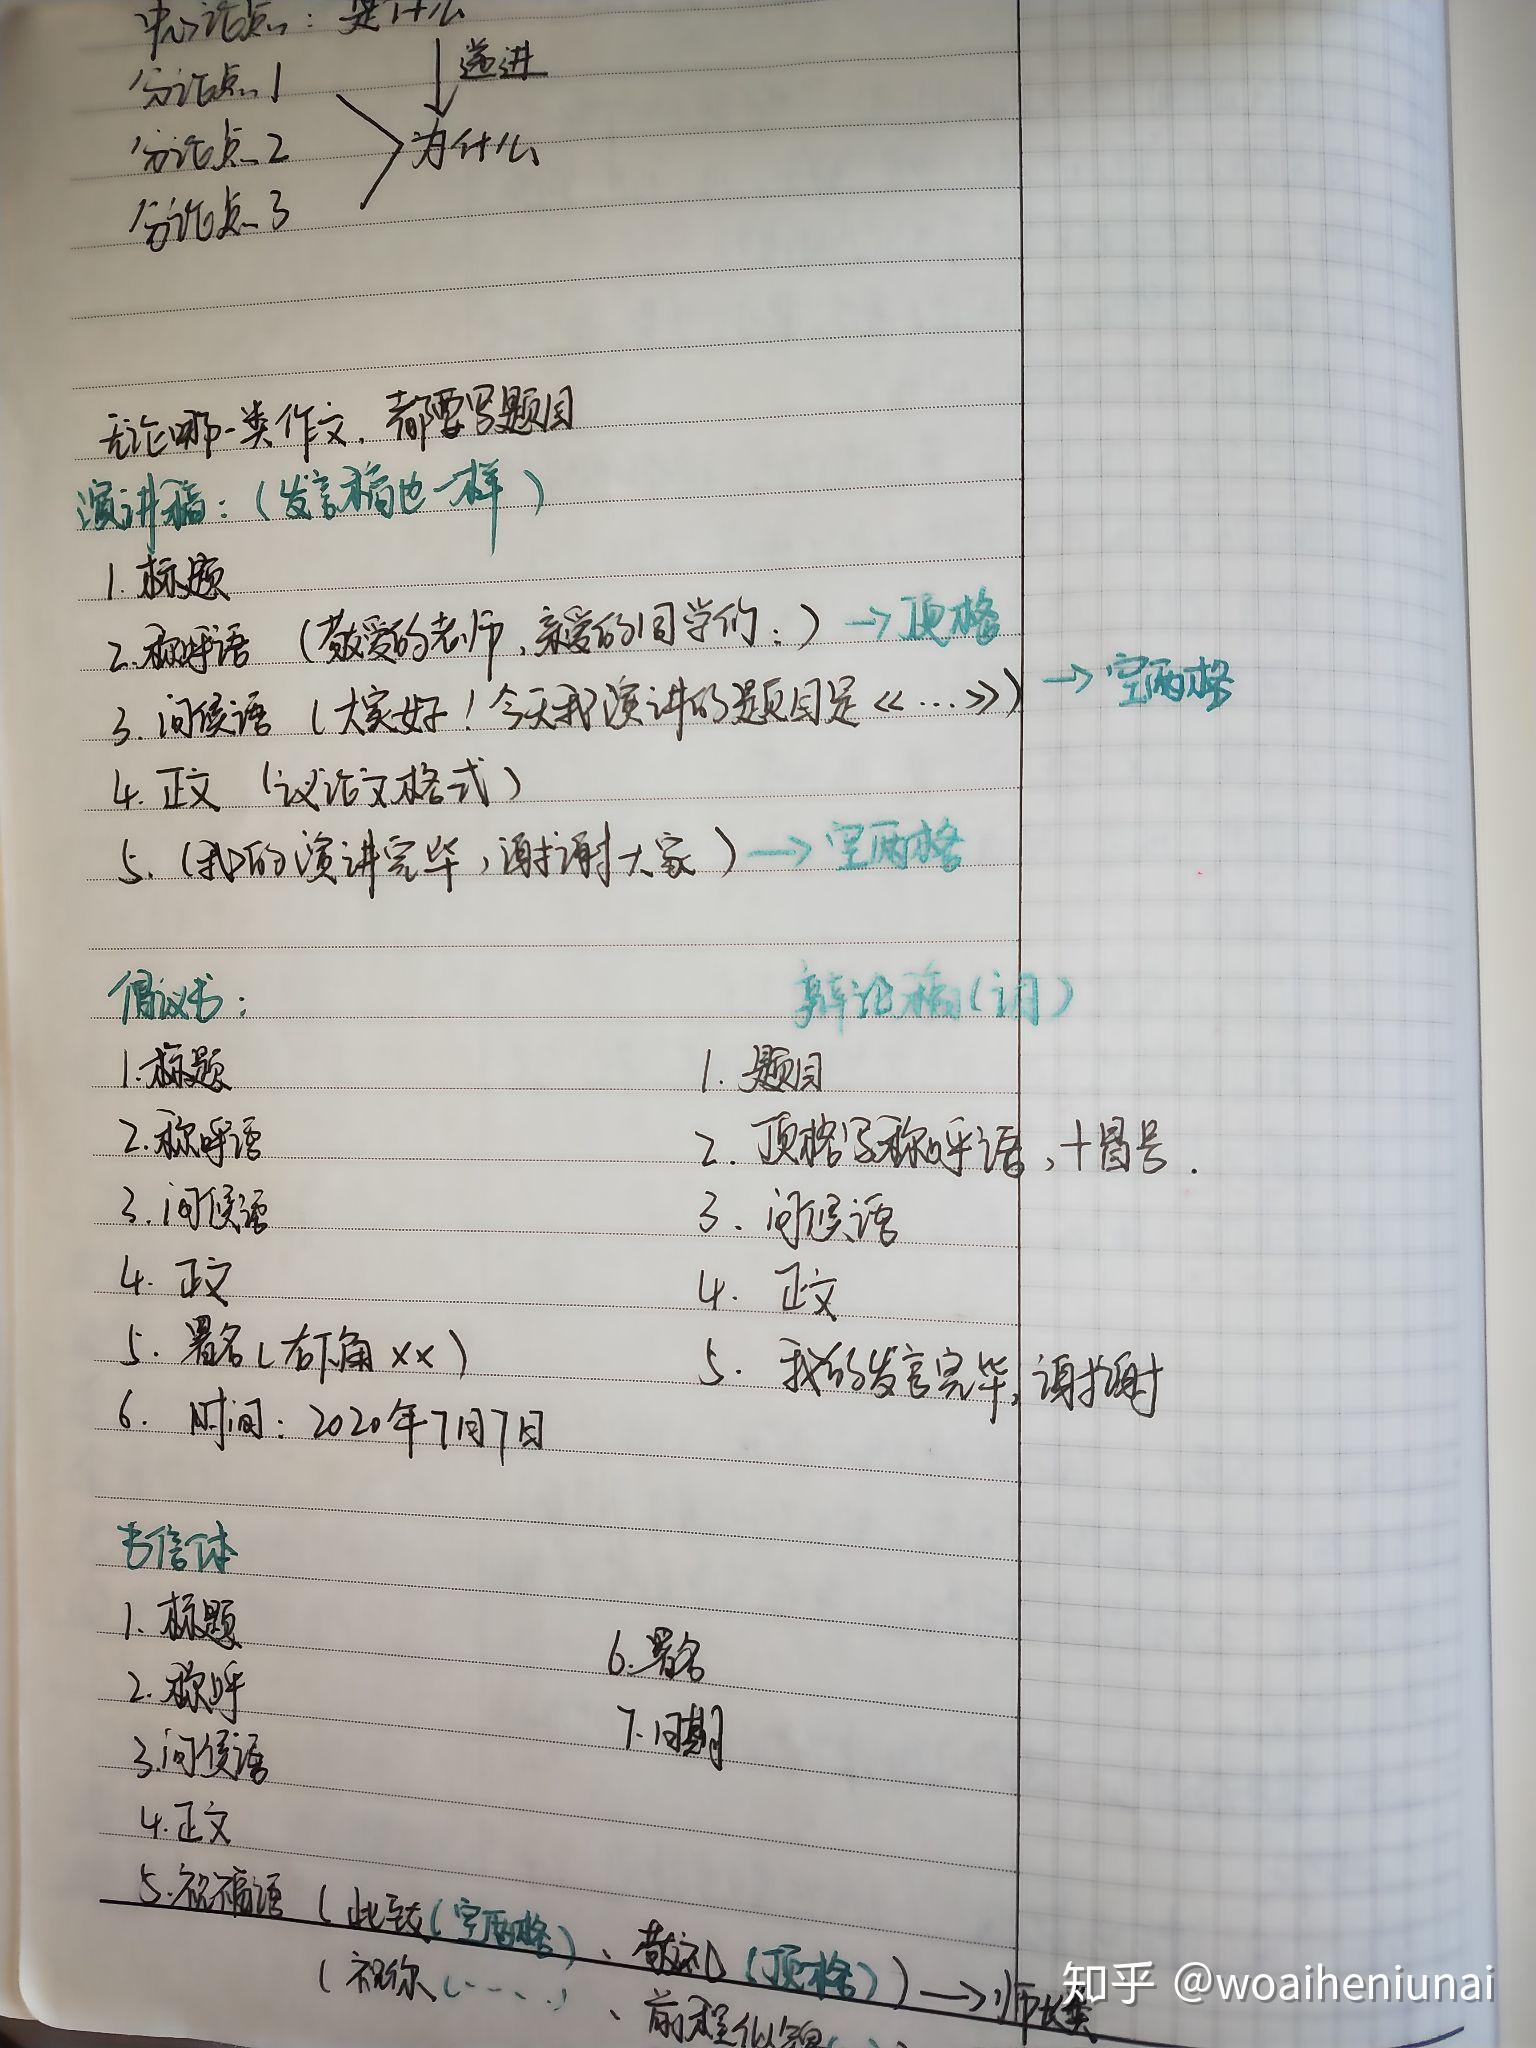 中心论点：是什么
递进
分论点1
分论点2
为什么
分论点3
无论哪一类作文，都要写题目
演讲稿：（发言稿也一样）
1. 标题
2. 称呼语（敬爱的老师，亲爱的同学们：）→顶格
3. 问候语（大家好！今天我演讲的题目是《…》）→空两格
4. 正文（议论文格式）
5.（我的演讲完毕，谢谢大家）→空两格
倡议书：
1. 标题
2. 称呼语
3. 问候语
4. 正文
5. 署名（右下角××）
6. 时间：2020年7月7日
辩论稿（词）
1. 题目
2. 顶格写称呼语，+冒号.
3. 问候语
4. 正文
5. 我的发言完毕，谢谢
书信体
1. 标题
2. 称呼
3. 问候语
4. 正文
5. 祝福语（此致（空两格）、敬礼（顶格））→师长类
（祝你（……）、前程似锦
6. 署名
7. 日期
知乎 @woaiheniunai